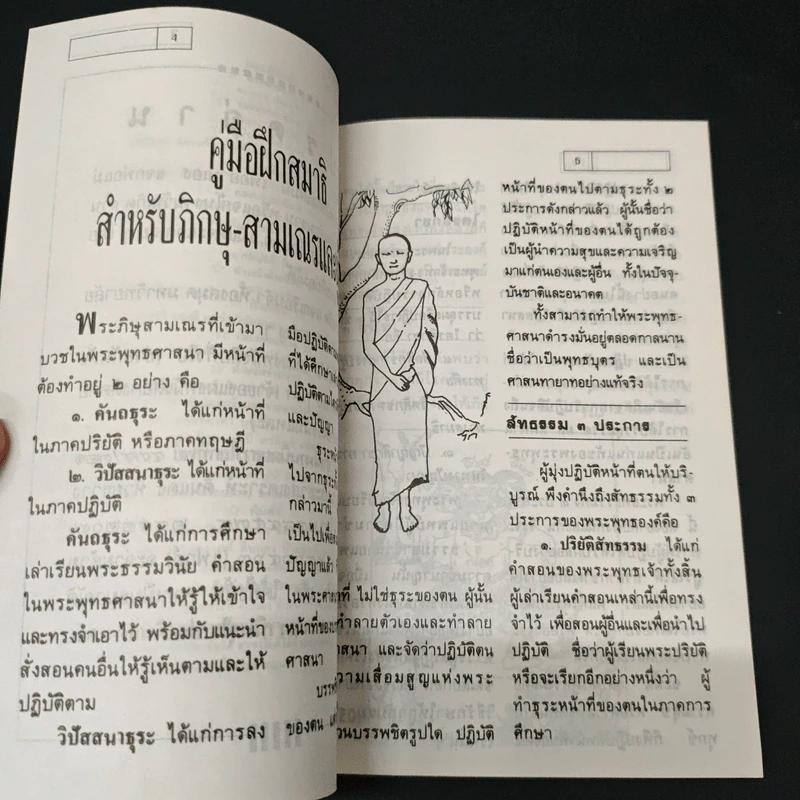 4
คู่มือฝึกสมาธิ
สำหรับภิกษุ-สามเณรและ
พระภิษุสามเณรที่เข้ามา
บวชในพระพุทธศาสนา มีหน้าที่
ต้องทำอยู่ ๒ อย่าง คือ
๑. คันถธุระ ได้แก่หน้าที่
ในภาคปริยัติ หรือภาคทฤษฎี
๒. วิปัสสนาธุระ ได้แก่หน้าที่
ในภาคปฏิบัติ
คันถธุระ ได้แก่การศึกษา
เล่าเรียนพระธรรมวินัย คำสอน
ในพระพุทธศาสนาให้รู้ให้เข้าใจ
และทรงจำเอาไว้ พร้อมกับแนะนำ
สั่งสอนคนอื่นให้รู้เห็นตามและให้
ปฏิบัติตาม
วิปัสสนาธุระ ได้แก่การลง
มือปฏิบัติตาม
ที่ได้ศึกษา
ปฏิบัติตาม
และปัญญา
ธุระ
ไปจากธุระ
กล่าวมานี้
เป็นไปเพื่อ
ปัญญาแล้ว
ในพระศาสนา
หน้าที่ของ
ศาสนา
บรรพ
ของตน
ที่ ไม่ใช่ธุระของตน ผู้นั้น
ทำลายตัวเองและทำลาย
และจัดว่าปฏิบัติตน
ความเสื่อมสูญแห่งพระ
ส่วนบรรพชิตรูปใด ปฏิบัติ
5
หน้าที่ของตนไปตามธุระทั้ง ๒
ประการดังกล่าวแล้ว ผู้นั้นชื่อว่า
ปฏิบัติหน้าที่ของตนได้ถูกต้อง
เป็นผู้นำความสุขและความเจริญ
มาแก่ตนเองและผู้อื่น ทั้งในปัจจุ-
บันชาติและอนาคต
ทั้งสามารถทำให้พระพุทธ-
ศาสนาดำรงมั่นอยู่ตลอดกาลนาน
ชื่อว่าเป็นพุทธบุตร และเป็น
ศาสนทายาทอย่างแท้จริง
สัทธรรม ๓ ประการ
ผู้มุ่งปฏิบัติหน้าที่ตนให้บริ-
บูรณ์ พึงคำนึงถึงสัทธรรมทั้ง ๓
ประการของพระพุทธองค์คือ
๑. ปริยัติสัทธรรม ได้แก่
คำสอนของพระพุทธเจ้าทั้งสิ้น
ผู้เล่าเรียนคำสอนเหล่านี้เพื่อทรง
จำไว้ เพื่อสอนผู้อื่นและเพื่อนำไป
ปฏิบัติ ชื่อว่าผู้เรียนพระปริยัติ
หรือจะเรียกอีกอย่างหนึ่งว่า ผู้
ทำธุระหน้าที่ของตนในภาคการ
ศึกษา